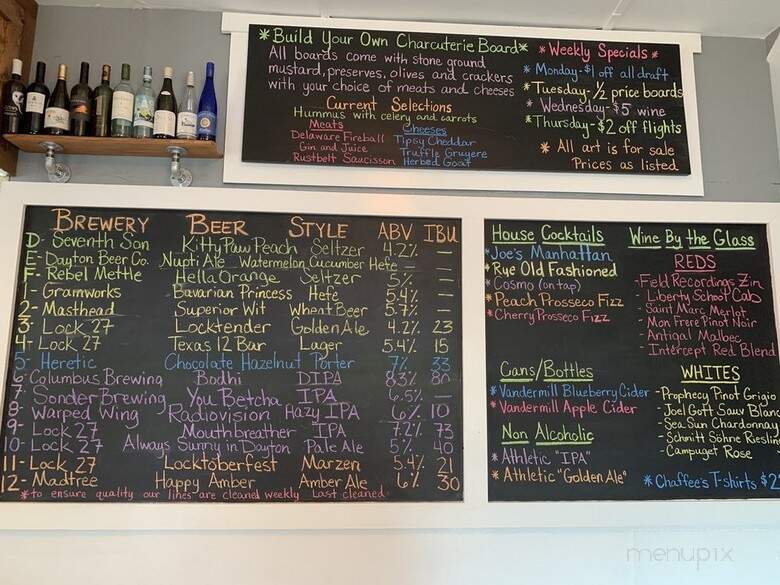 *Build Your Own Charcuterie Board*
All boards come with stone ground
mustard, preserves, olives and crackers
with your choice of meats and cheeses
Current Selections
Hummus with celery and carrots
Meats
Delaware Fireball
Gin and Juice
Rustbelt Saucisson
Cheeses
Tipsy Cheddar
Truffle Gruyere
Herbed Goat
* Weekly Specials *
* Monday-$1 off all draft
*Tuesday-½ price boards
* Wednesday-$5 wine
*Thursday-$2 off flights
* All art is for sale
Prices as listed
BREWERY BEER STYLE ABV IBU
D- Seventh Son KittyPawPeach Seltzer 4.2% —
E- Dayton Beer Co. Nupti Ale Watermelon Cucumber Hefe —
F- Rebel Mettle HellaOrange Seltzer 5% —
1- Gramworks Bavarian Princess Hefe 5.4% —
2- Masthead Superior Wit Wheat Beer 5.7% —
3- Lock 27 Locktender Golden Ale 4.2% 23
4- Lock 27 Texas 12 Bar Lager 5.4% 15
5- Heretic Chocolate Hazelnut Porter 7% 33
6- Columbus Brewing Bodhi DIPA 8.3% 80
7- Sonder Brewing You Betcha IPA 6.5% —
8- Warped Wing Radiovision Hazy IPA 6% 10
9- Lock 27 Mouthbreather IPA 7.2% 73
10- Lock 27 Always Sunny in Dayton Pale Ale 5% 40
11- Lock 27 Locktoberfest Marzen 5.4% 21
12- Madtree Happy Amber Amber Ale 6% 30
*to ensure quality our lines are cleaned weekly Last cleaned
House Cocktails
*Joe's Manhattan
*Rye Old Fashioned
*Cosmo (on tap)
*Peach Prosseco Fizz
*Cherry Prosseco Fizz
Cans/Bottles
*Vandermill Blueberry Cider
*Vandermill Apple Cider
Non Alcoholic
*Athletic "IPA"
*Athletic "Golden Ale"
Wine By the Glass
REDS
-Field Recordings Zin
-Liberty School Cab
-Saint Marc Merlot
-Mon Frere Pinot Noir
-Antigal Malbec
-Intercept Red Blend
WHITES
-Prophecy Pinot Grigio
-Joel Gott Sauv Blan
-Sea Sun Chardonnay
-Schmitt Söhne Rieslin
-Campuget Rose
*Chaffee's T-shirts $2
menupix